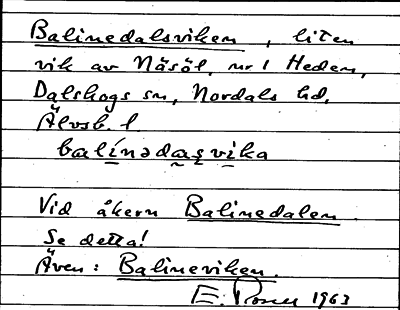 Balinedalsviken, liten
vik av Näsöl, nr 1 Heden,
Dalskogs sn, Nordals hd,
Älvsb. l
balinədaʂvika
Vid åkern Balinedalen.
Se detta!
Även: Balineviken.
E. 1963